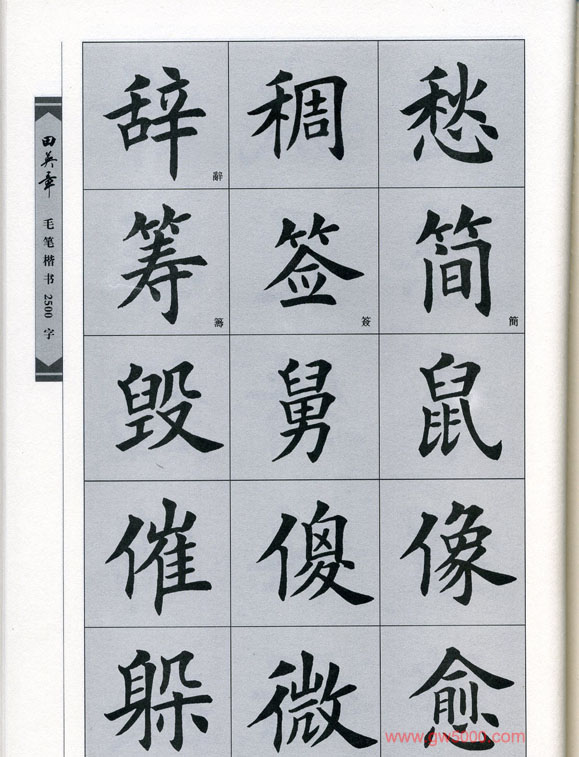 田英章 毛笔楷书 2500 字
辞 稠 愁
辭
筹 签 简
籌 簽 簡
毁 舅 鼠
催 傻 像
躲 微 愈
www.gw5000.com